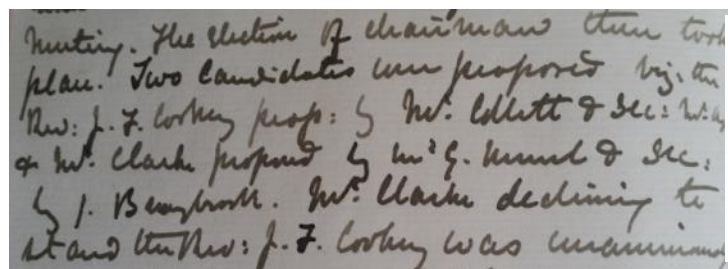 meeting. The Election of Chairman then took
place. Two Candidates were proposed viz. the
Rev: J. F. prop: by Mr. Collett & Sec:
& Mr. Clarke proposed by Mr G. & Sec:
by J. Mr. Clarke declining to
stand the Rev: J. F. was unanimously